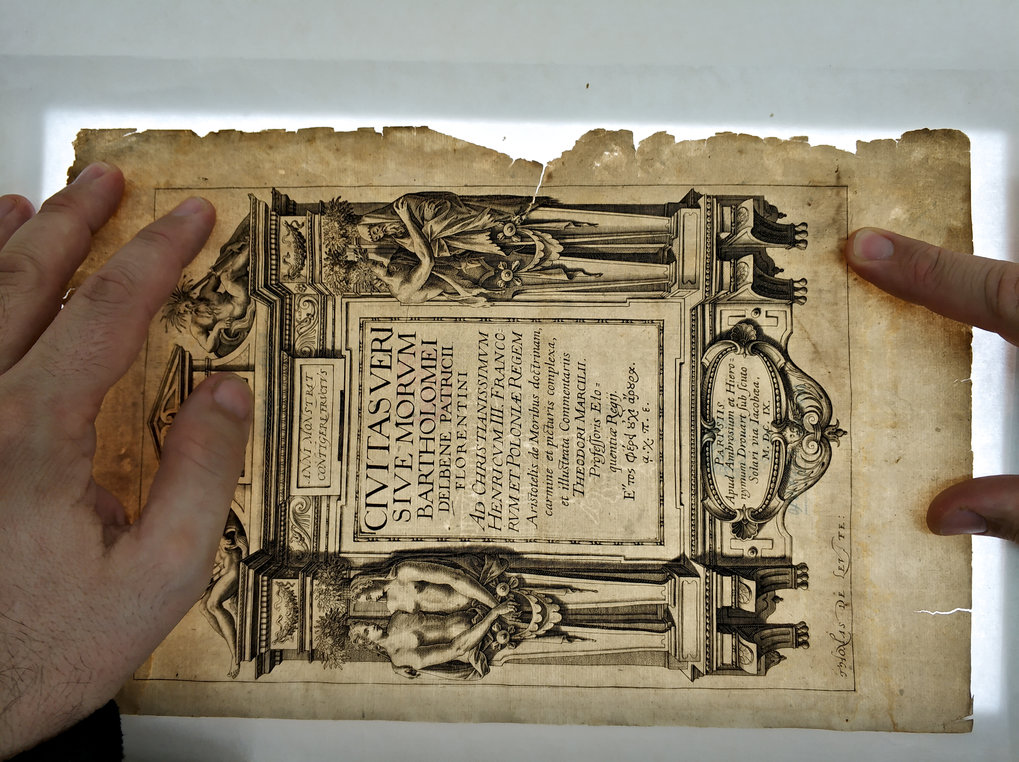 INNVI MONSTRAT
CONTIGERE TRICTIS
CIVITAS VERI
SIVE MORVM
BARTHOLOMEI
DELBENE PATRICII
FLORENTINI
AD CHRISTIANISSIMVM
HENRICVM III. FRANCO-
RVM ET POLONIÆ REGEM
Aristotelis de Moribus doctrinam,
carmine et picturis complexa,
et illustrata Commentariis
THEODORI MARCILII.
Professoris Elo=
quentiæ Regij.
PARISIIS
Apud Ambrosium et Hiero=
nymum Drouart sub scuto
Solari via Iacobæa.
M. DC. IX.